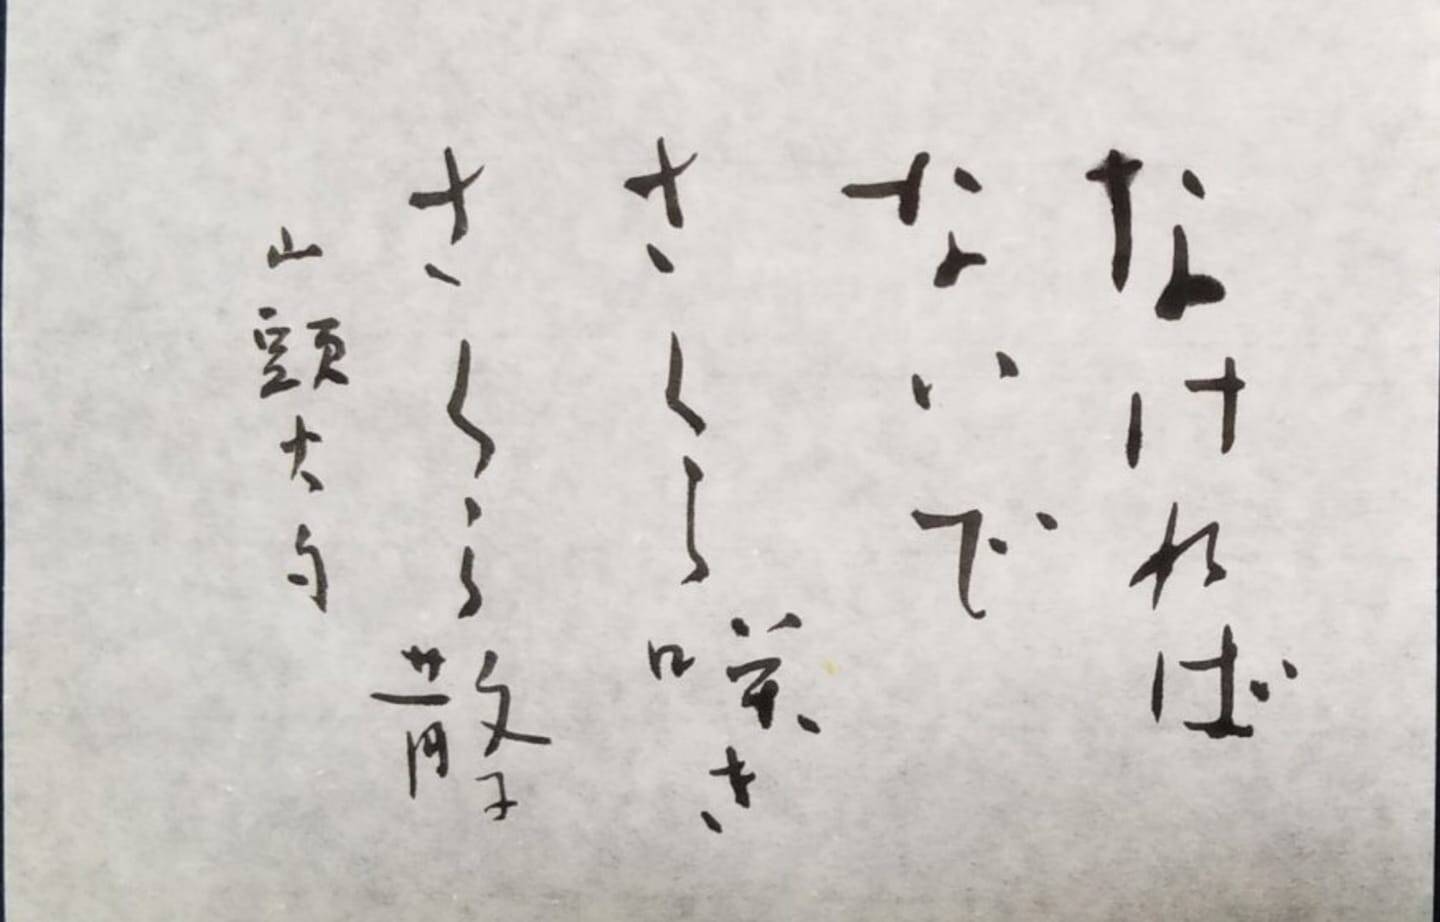 なければ
ないで
さくら咲き
さくら散る
山頭火句